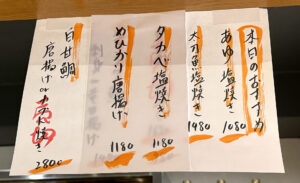 本日のおすすめ
あゆ塩焼き
1080
太刀魚塩焼き
1980
タカベ塩焼き
1180
めひかり唐揚げ
1180
白甘鯛
唐揚げor
焼き
2800